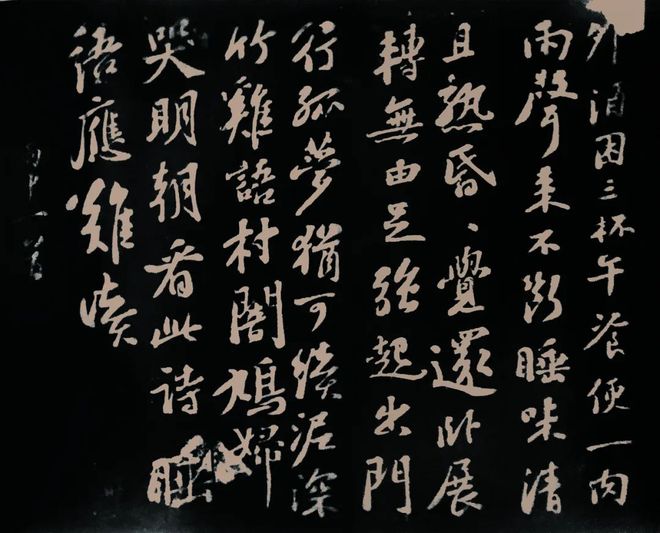 卯酒困三杯午飡便一肉
雨聲來不断睡味清
且熟昏〻覺還卧展
轉無由足强起出門
行孤夢猶可續泥深
竹雞語村闇鳩婦
哭明朝看此詩睡
語應難讀